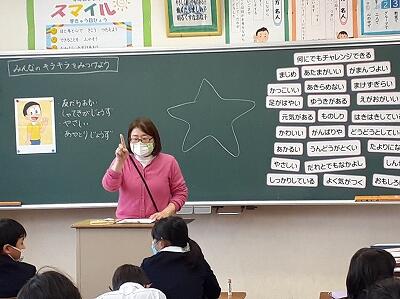 スマイル
みんなのキラキラをみつけよう
友だちおもい
しゃてきがじょうず
やさしい
あやとりじょうず
何にでもチャレンジできる
まじめ
あたまがいい
がまんづよい
かっこいい
あきらめない
まけずぎらい
足がはやい
ゆうきがある
えがおがいい
元気がある
ものしり
はきはきしている
かわいい
がんばりや
どうどうとしてい
あかるい
うんどうがとくい
たよりにな
やさしい
だれとでもなかよし
しんせ
しっかりしている
よく気がつく
おもしろ